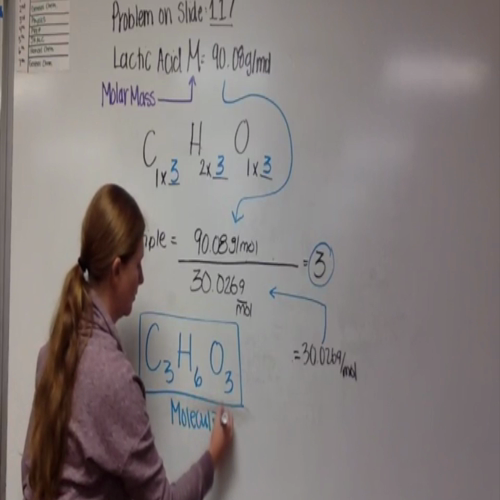 Problem on Slide: 117
Lactic Acid M = 90.08g/mol
Molar Mass
C 1x3 H 2x3 O 1x3
90.08g/mol
30.026g/mol
= 3
= 30.026g/mol
C3H6O3
Molecul